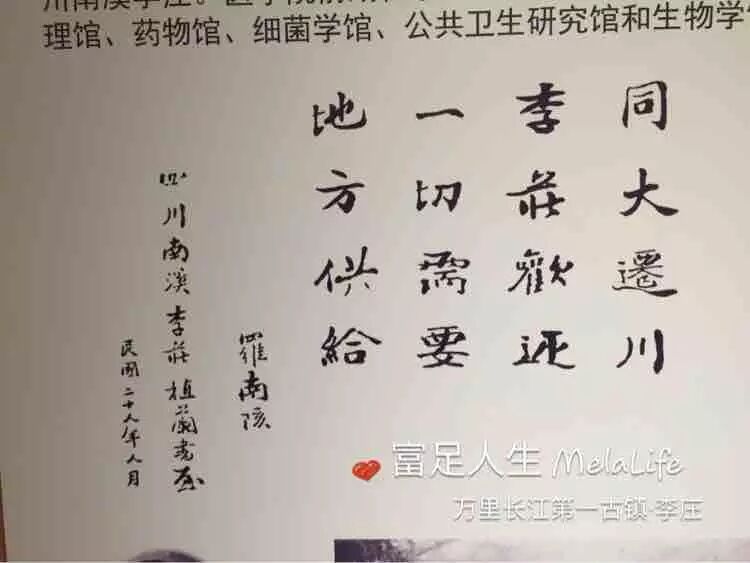 川南溪李庄。医学院
理馆、药物馆、细菌学馆、公共卫生研究馆和生物学
同大遷川
李莊歡迎
一切需要
地方供給
羅南陔
四川南溪李莊植蘭書屋
民國二十八年八月
富足人生 MelaLife
万里长江第一古镇·李庄